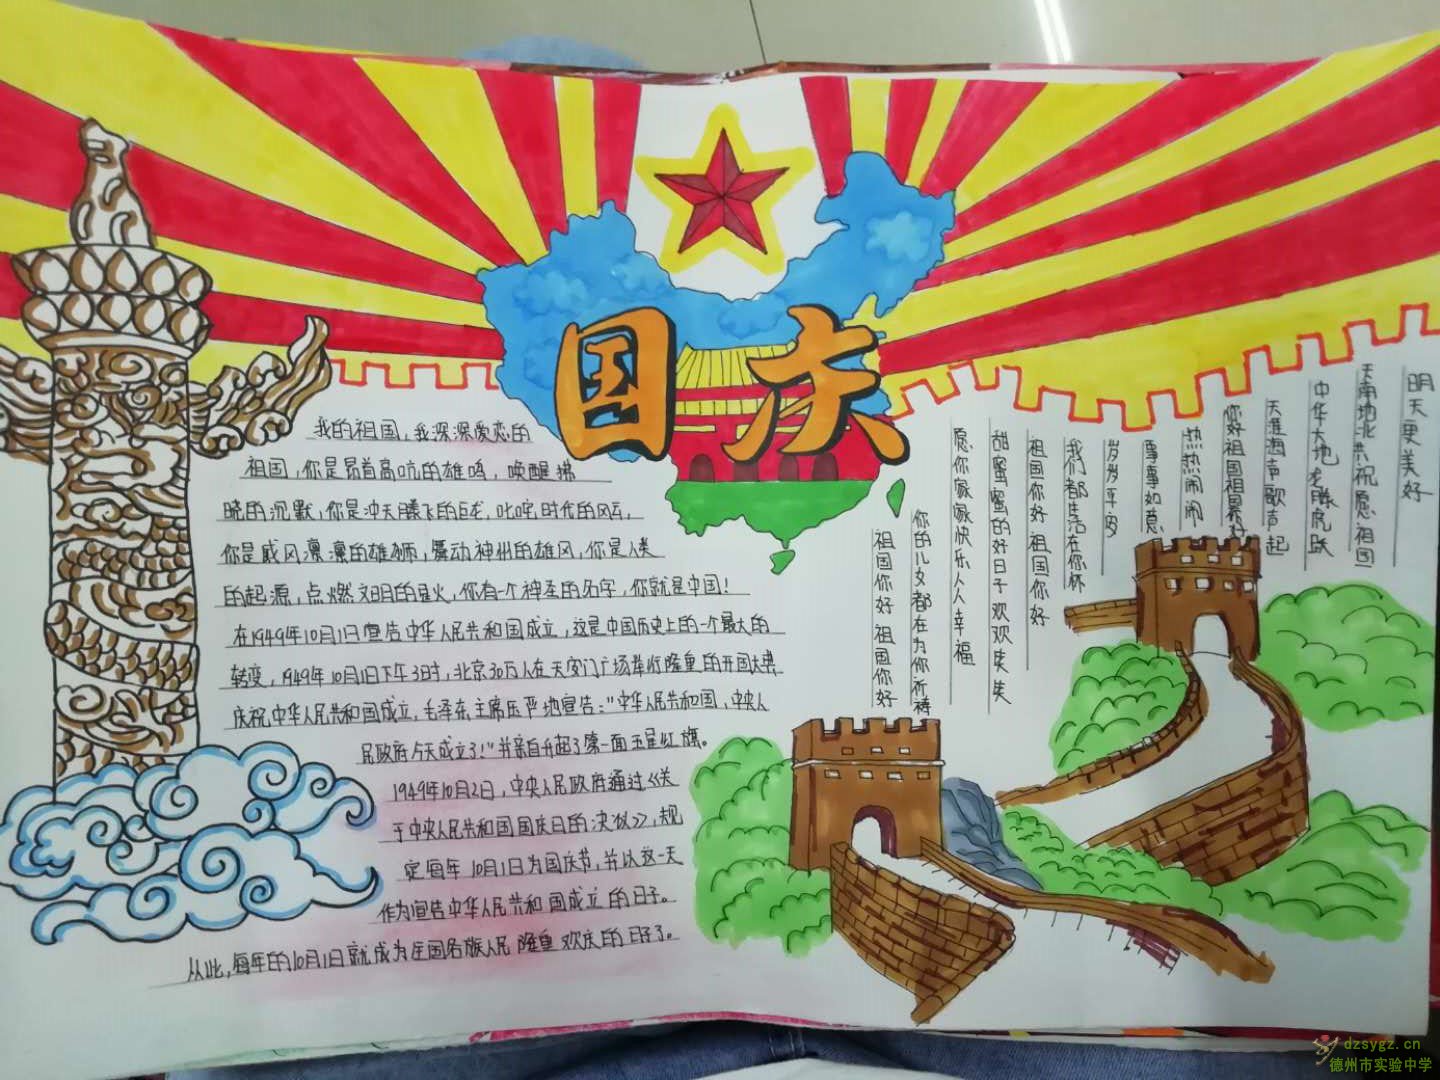 国庆
我的祖国，我深深爱恋的
祖国，你是昂首高吭的雄鸡，唤醒拂
晓的沉默，你是冲天腾飞的巨龙，叱咤时代的风云，
你是威风凛凛的雄狮，舞动神州的雄风，你是人类
的起源，点燃文明的星火，你有一个神圣的名字，你就是中国！
在1949年10月1日宣告中华人民共和国成立，这是中国历史上的一个最大的
转变，1949年10月1日下午3时，北京30万人在天安门广场举行隆重的开国大典
庆祝中华人民共和国成立，毛泽东主席庄严地宣告："中华人民共和国，中央人
民政府今天成立了！"并亲自升起了第一面五星红旗。
1949年10月2日，中央人民政府通过《关
于中央人民共和国国庆日的决议》，规
定每年10月1日为国庆节，并以这一天
作为宣告中华人民共和国成立的日子。
从此，每年的10月1日就成为全国各族人民隆重欢庆的日子了。
明天更美好
天南地北共祝愿祖国
中华大地龙腾虎跃
天涯海声歌声起
你好祖国祖国
热热闹闹
事事如意
岁岁平安
我们都生活在你怀
祖国你好 祖国你好
甜蜜蜜的好日子欢欢笑笑
愿你家家快乐人人幸福
你的儿女都在为你祈祷
祖国你好 祖国你好
dzsygz.cn
德州市实验中学